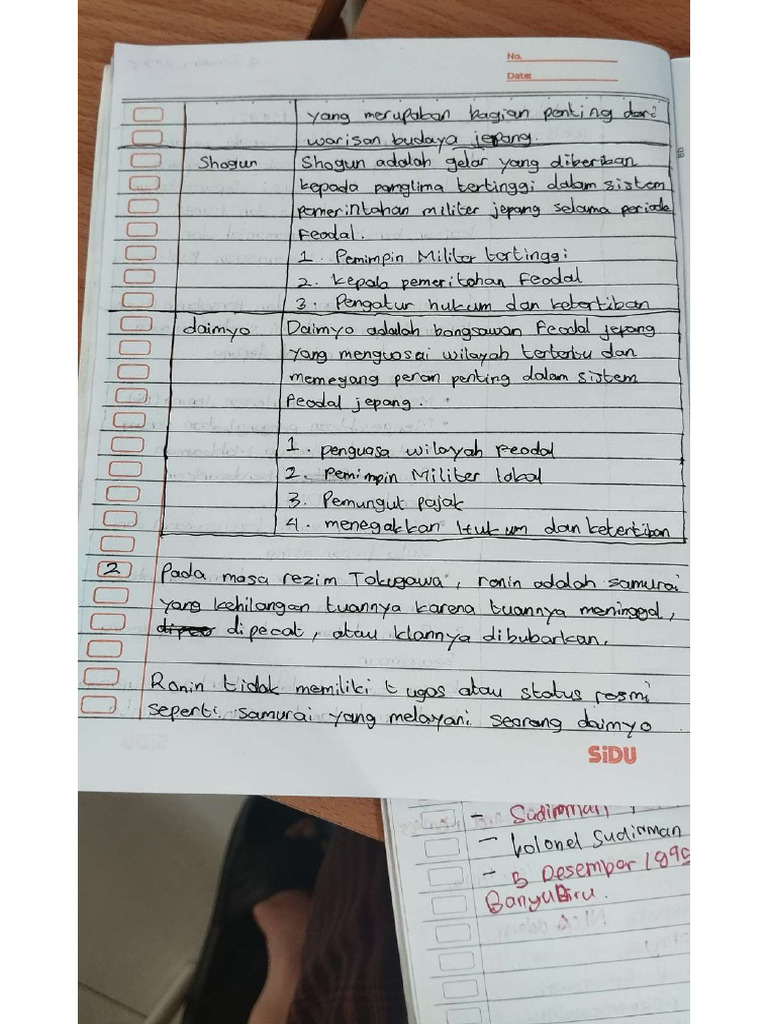 No.
Date:
yang merupakan bagian penting dari
warisan budaya jepang.
Shogun
Shogun adalah gelar yang diberikan
kepada panglima tertinggi dalam sistem
pemerintahan militer jepang selama periode
Feodal.
1. Pemimpin Militer tertinggi
2. kepala pemeritahan Feodal
3. Pengatur hukum dan ketertiban
daimyo
Daimyo adalah bangsawan Feodal jepang
yang menguasai wilayah tertentu dan
memegang peran penting dalam sistem
feodal jepang.
1. penguasa wilayah feodal
2. Pemimpin Militer lokal
3. Pemungut pajak
4. menegakkan Hukum dan ketertiban
2 Pada masa rezim Tokugawa, ronin adalah samurai
yang kehilangan tuannya karena tuannya meninggal,
dipecat, atau klannya dibubarkan.
Ronin tidak memiliki tugas atau status resmi
seperti samurai yang melayani seorang daimyo.
SiDU
- Sudirman
- kolonel Sudirman
- Desember
BanyuBiru.